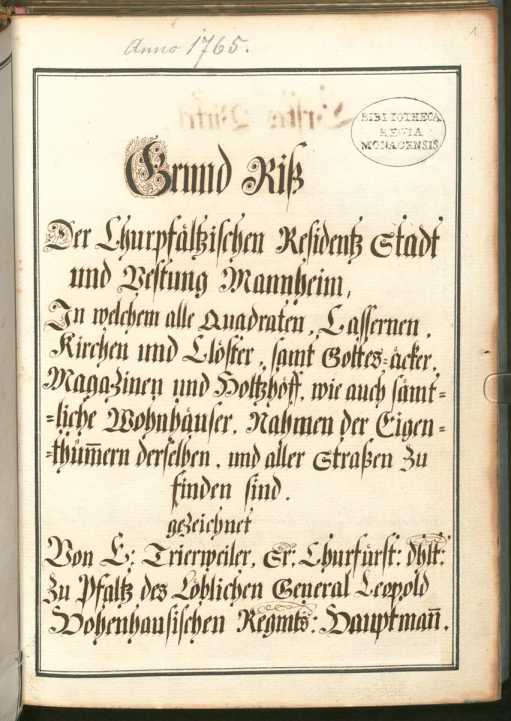 Anno 1765.
1
BIBLIOTHECA
REGIA
MONACENSIS
Grund Riß
Der Churpfältzischen Residentz Stadt
und Vestung Mannheim,
In welchem alle Quadraten, Cassernen,
Kirchen und Clöster, samt Gottes-äcker,
Magazinen und Holtzhöff, wie auch sämt-
-liche Wohnhäuser, Nahmen der Eigen-
-thüm̅ern derselben, und aller Straßen Zu
finden sind.
gezeichnet
Von L: Trierweiler, Sr: Churfürst: dhlt:
Zu Pfaltz des Löblichen General Leopold
Hohenhausischen Regmts: Hauptman̅.